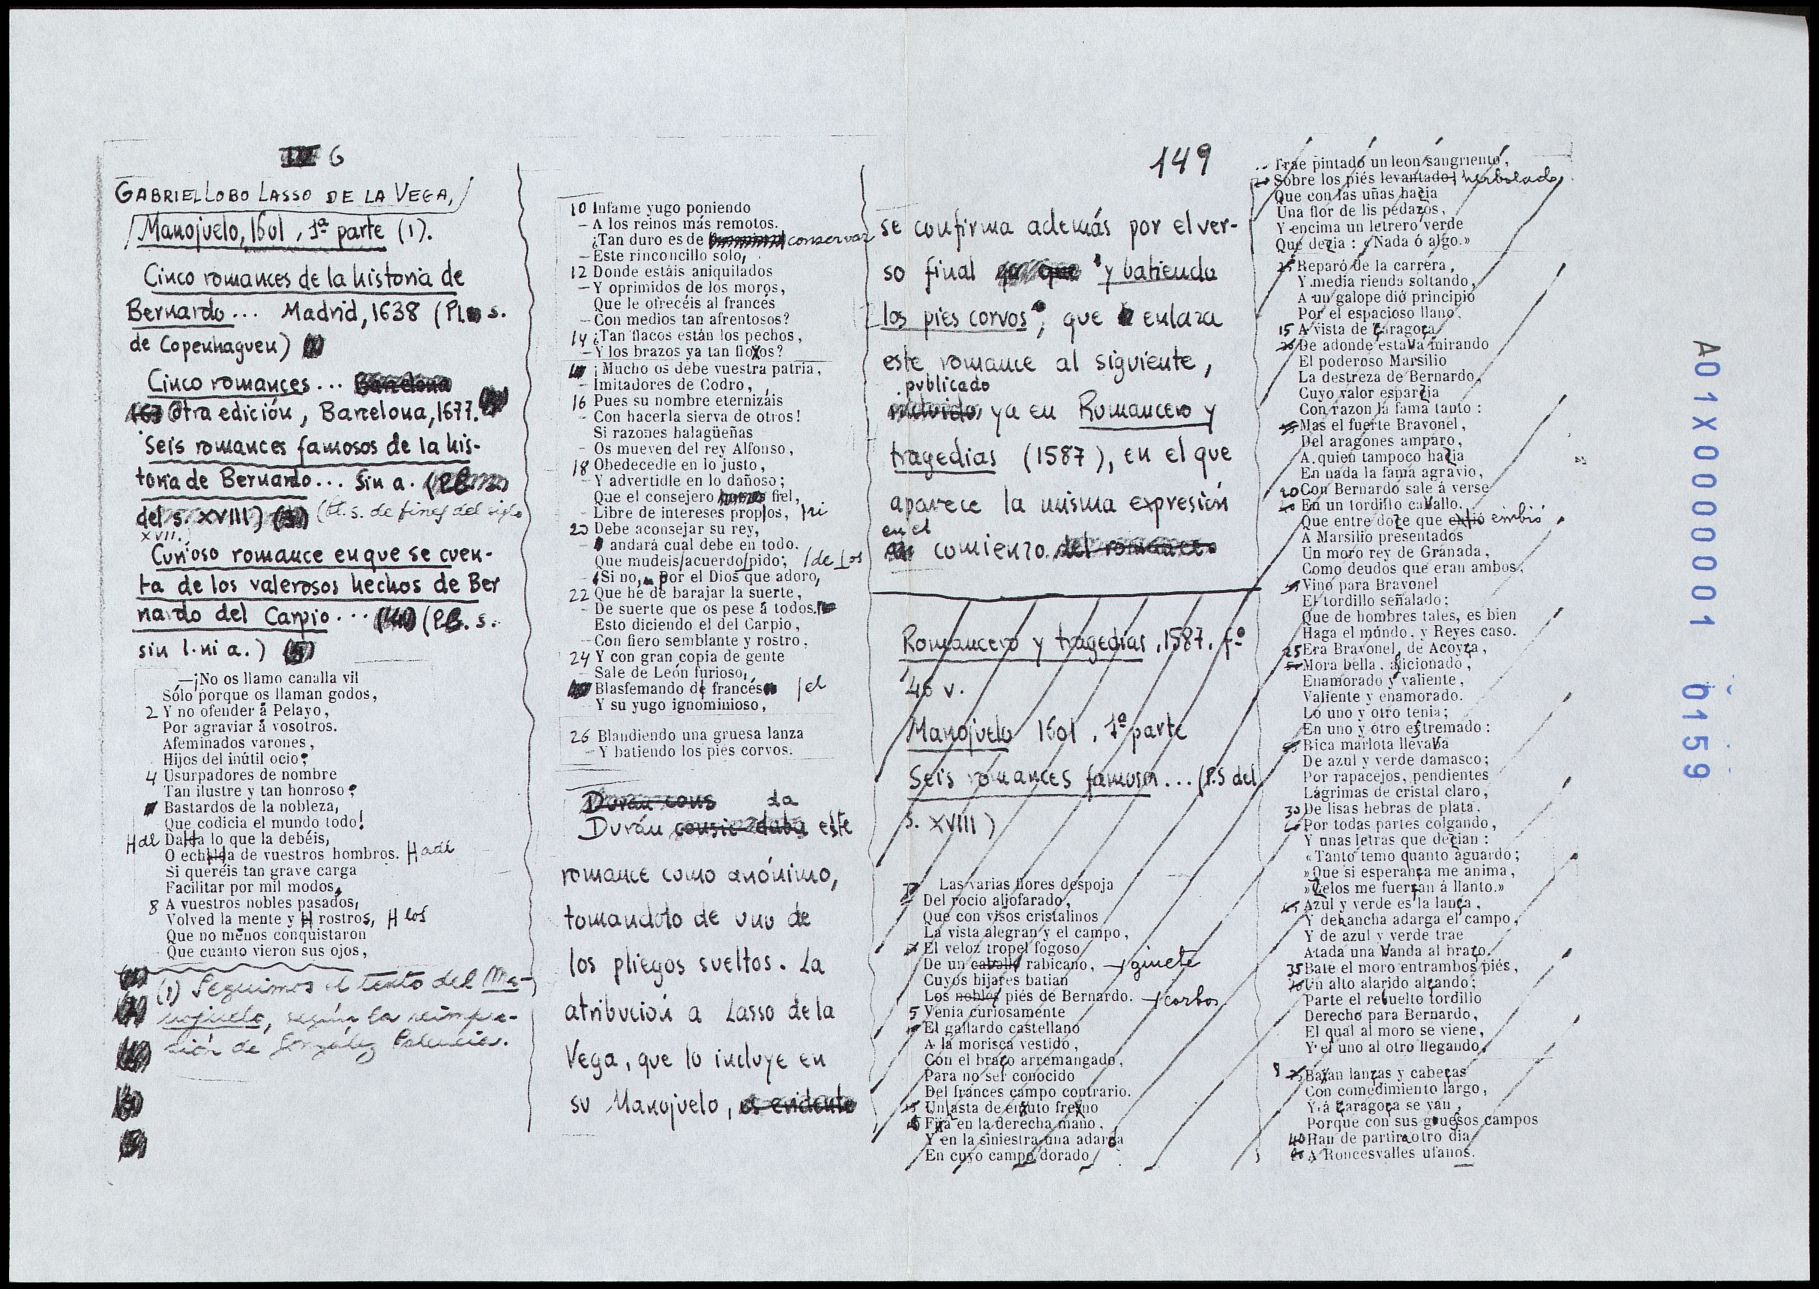 6
GABRIEL LOBO LASSO DE LA VEGA,
Manojuelo, 1601, 1ª parte (1).
Cinco romances de la historia de
Bernardo... Madrid, 1638 (Pl. s.
de Copenhaguen)
Cinco romances... Barcelona
Otra edición, Barcelona, 1677.
Seis romances famosos de la his-
toria de Bernardo... Sin a.
del s. XVIII) (Pl. s. de fines del siglo
XVII.
Curioso romance en que se cuen-
ta de los valerosos hechos de Ber
nardo del Carpio... (P.B. s.
sin l. ni a.)
—¡No os llamo canalla vil
Sólo porque os llaman godos,
2 Y no ofender á Pelayo,
Por agraviar á vosotros.
Afeminados varones,
Hijos del inútil ocio?
4 Usurpadores de nombre
Tan ilustre y tan honroso?
Bastardos de la nobleza,
Que codicia el mundo todo!
H dl Dalda lo que la debéis,
O echalda de vuestros hombros. H adl
Si queréis tan grave carga
Facilitar por mil modos,
8 A vuestros nobles pasados,
Volved la mente y H rostros, H los
Que no menos conquistaron
Que cuanto vieron sus ojos,
(1) Seguimos el texto del Ma-
nojuelo, según la reimpre-
sión de González Palencia.
10 Infame yugo poniendo
- A los reinos más remotos.
¿Tan duro es de conservar
- Este rinconcillo solo,
12 Donde estáis aniquilados
- Y oprimidos de los moros,
Que le ofrecéis al francés
- Con medios tan afrentosos?
14 ¿Tan flacos están los pechos,
- Y los brazos ya tan floxos?
¡Mucho os debe vuestra patria,
- Imitadores de Codro,
16 Pues su nombre eternizáis
- Con hacerla sierva de otros!
Si razones halagüeñas
- Os mueven del rey Alfonso,
18 Obedecedle en lo justo,
- Y advertidle en lo dañoso;
Que el consejero fiel,
- Libre de intereses propios, /pi
20 Debe aconsejar su rey,
- andará cual debe en todo.
Que mudeis/acuerdo/pido; /de los
- Si no, por el Dios que adoro,
22 Que he de barajar la suerte,
- De suerte que os pese á todos.
Esto diciendo el del Carpio,
- Con fiero semblante y rostro,
24 Y con gran copia de gente
- Sale de León furioso,
Blasfemando del francés /el
Y su yugo ignominioso,
26 Blandiendo una gruesa lanza
- Y batiendo los pies corvos.
Durán cons da
Durán consideraba este
romance como anónimo,
tomandolo de uno de
los pliegos sueltos. La
atribución a Lasso de la
Vega, que lo incluye en
su Manojuelo, es evidente
149
se confirma además por el ver-
so final ya que "y batiendo
los pies corvos", que enlaza
este romance al siguiente,
publicado
incluido ya en Romancero y
tragedias (1587), en el que
aparece la misma expresión
en el
comienzo del romance.
Romancero y tragedias, 1587. fº
46 v.
Manojuelo 1601, 1ª parte
Seis romances famosos... (P.S del
s. XVIII)
Las varias flores despoja
Del rocío aljofarado,
Que con visos cristalinos
La vista alegran y el campo,
El veloz tropel fogoso
De un caballo rabicano, ginete
Cuyos hijares batian
Los nobles piés de Bernardo. corbos
5 Venia curiosamente
El gallardo castellano
A la morisca vestido,
Con el braço arremangado,
Para no ser conocido
Del frances campo contrario.
Un asta de enxuto frexno
Fixa en la derecha mano,
Y en la siniestra una adarga
En cuyo campo dorado
Trae pintado un leon sangriento,
Sobre los piés levantado, herbolado
Que con las uñas hazia
Una flor de lis pedazos,
Y encima un letrero verde
Que dezia: «Nada ó algo.»
Reparó de la carrera,
Y media rienda soltando,
A un galope dió principio
Por el espacioso llano,
15 A vista de Çaragoça
De adonde estava mirando
El poderoso Marsilio
La destreza de Bernardo,
Cuyo valor esparcia
Con razon la fama tanto:
Mas el fuerte Bravonel,
Del aragones amparo,
A quien tampoco hazia
En nada la fama agravio,
20 Con Bernardo sale á verse
En un tordillo cavallo,
Que entre doze que envió embió
A Marsilio presentados
Un moro rey de Granada,
Como deudos que eran ambos,
Vino para Bravonel
El tordillo señalado;
Que de hombres tales, es bien
Haga el mundo, y Reyes caso.
25 Era Bravonel, de Acoyza,
Mora bella, aficionado,
Enamorado y valiente,
Valiente y enamorado.
Lo uno y otro tenia;
En uno y otro estremado:
Rica marlota llevava
De azul y verde damasco;
Por rapacejos, pendientes
Lágrimas de cristal claro,
30 De lisas hebras de plata,
Por todas partes colgando,
Y unas letras que dezian:
«Tanto temo quanto aguardo;
»Que si esperança me anima,
»Zelos me fuerçan á llanto.»
Azul y verde es la lança,
Y de ancha adarga el campo,
Y de azul y verde trae
Atada una vanda al brazo.
35 Bate el moro entrambos piés,
Un alto alarido alçando;
Parte el rebuelto tordillo
Derecho para Bernardo,
El qual al moro se viene,
Y el uno al otro llegando,
Baxan lanças y cabeças
Con comedimiento largo,
Y á Çaragoça se van,
Porque con sus gruesos campos
40 Han de partir otro dia
A Roncesvalles ufanos.
A01X0000001 0159